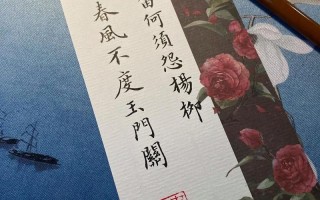 何須怨楊柳
春風不度玉門關